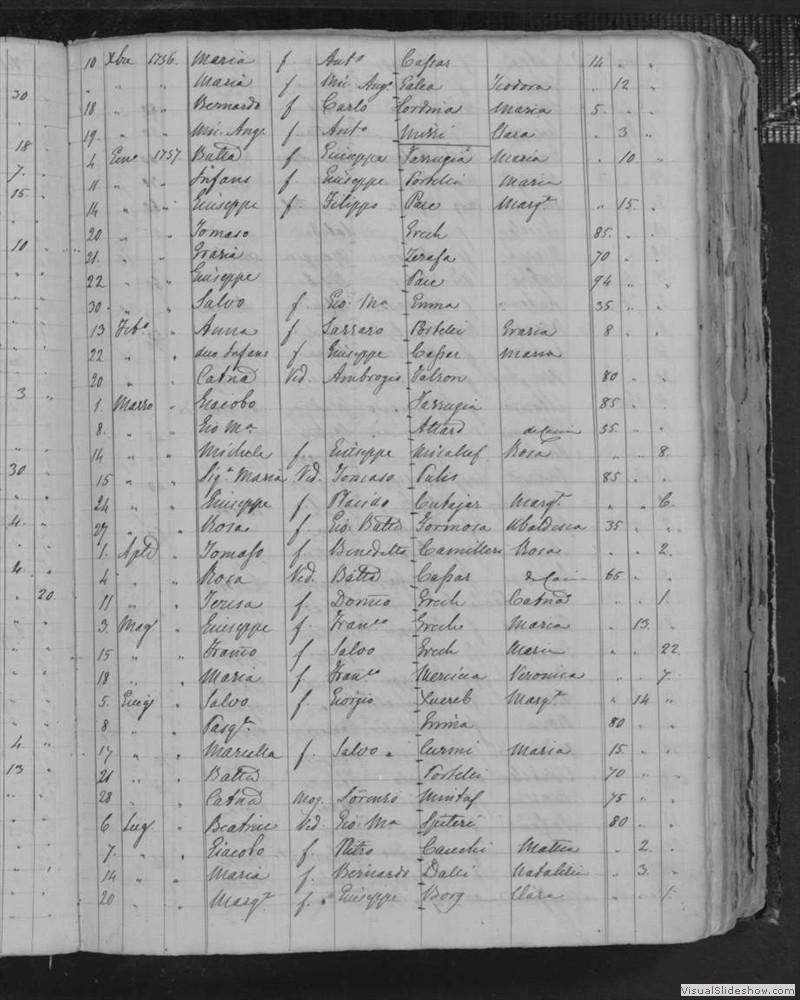 30
18
7.
15
10
3 "
30
4. "
4. "
" 20.
4. "
13 "
10 Xbre 1756. Maria f Ant° Cassar 14 " "
" " " Maria f Mic. Ang° Galea Teodora " 12 "
18 " " Bernardo f Carlo Cordina Maria 5 " "
19 " " Mic. Ang° f Ant° Mizzi Clara " 3 "
4 Gen° 1757. Batta f Giuseppe Farrugia Maria " 10 "
11 " " Infans f Giuseppe Portelli Maria
14 " " Giuseppe f. Filippo Pace Marg.ta " 15 "
20 " " Tomaso Grech 85 " "
21 " " Grazia Zerafa 70 " "
22 " " Giuseppe Pace 94 " "
30 " " Salvo f Gio. Ma Emma 35 " "
13 Feb° " Anna f Lazzaro Portelli Grazia 8 " "
22 " " due Infans f Giuseppe Cassar Maria
20 " " Catna Ved. Ambrogio Falzon 80 " "
1. Marzo " Giacobo Farrugia 85 " "
8. " " Gio Ma Attard 35 " "
14 " " Michele f Giuseppe Micallef Rosa " " 8.
15 " " Sig.a Maria Ved. Tomaso Pulis 85 " "
24 " " Giuseppe f Placido Cutajar Marg.ta " " 6.
27 " " Rosa f Gio Batta Formosa Ubaldesca 35 " "
1. Aple " Tomaso f. Benedetto Camilleri Rosa " " 2.
4 " " Rosa Ved. Batta Cassar 65 " "
11 " " Teresa f. Domco Grech Catna " " 1.
3. Mag " Giuseppe f. Franco Grech Maria " 13. "
15 " " Franco f Salvo Grech Maria " " 22
18 " " Maria f Franco Mercieca Veronica " " 7.
5. Giug " Salvo f Giorgio Xuereb Marg.ta " 14 "
8 " " Pasq.le Emma 80 " "
17 " " Marcella f. Salvo Curmi Maria 15 " "
21 " " Batta Portelli 70 " "
28 " " Catna Mog. Lorenzo Mintof 75 " "
6 Lug. " Beatrice Ved. Gio. Ma Spiteri 80 " "
7. " " Giacobo f. Pietro Cauchi Mattea " 2. "
14 " " Maria f. Bernardo Dalli Natalizia " 3. "
20 " " Marg.ta f. Giuseppe Borg Clara " " 1.
VisualSlideshow.com